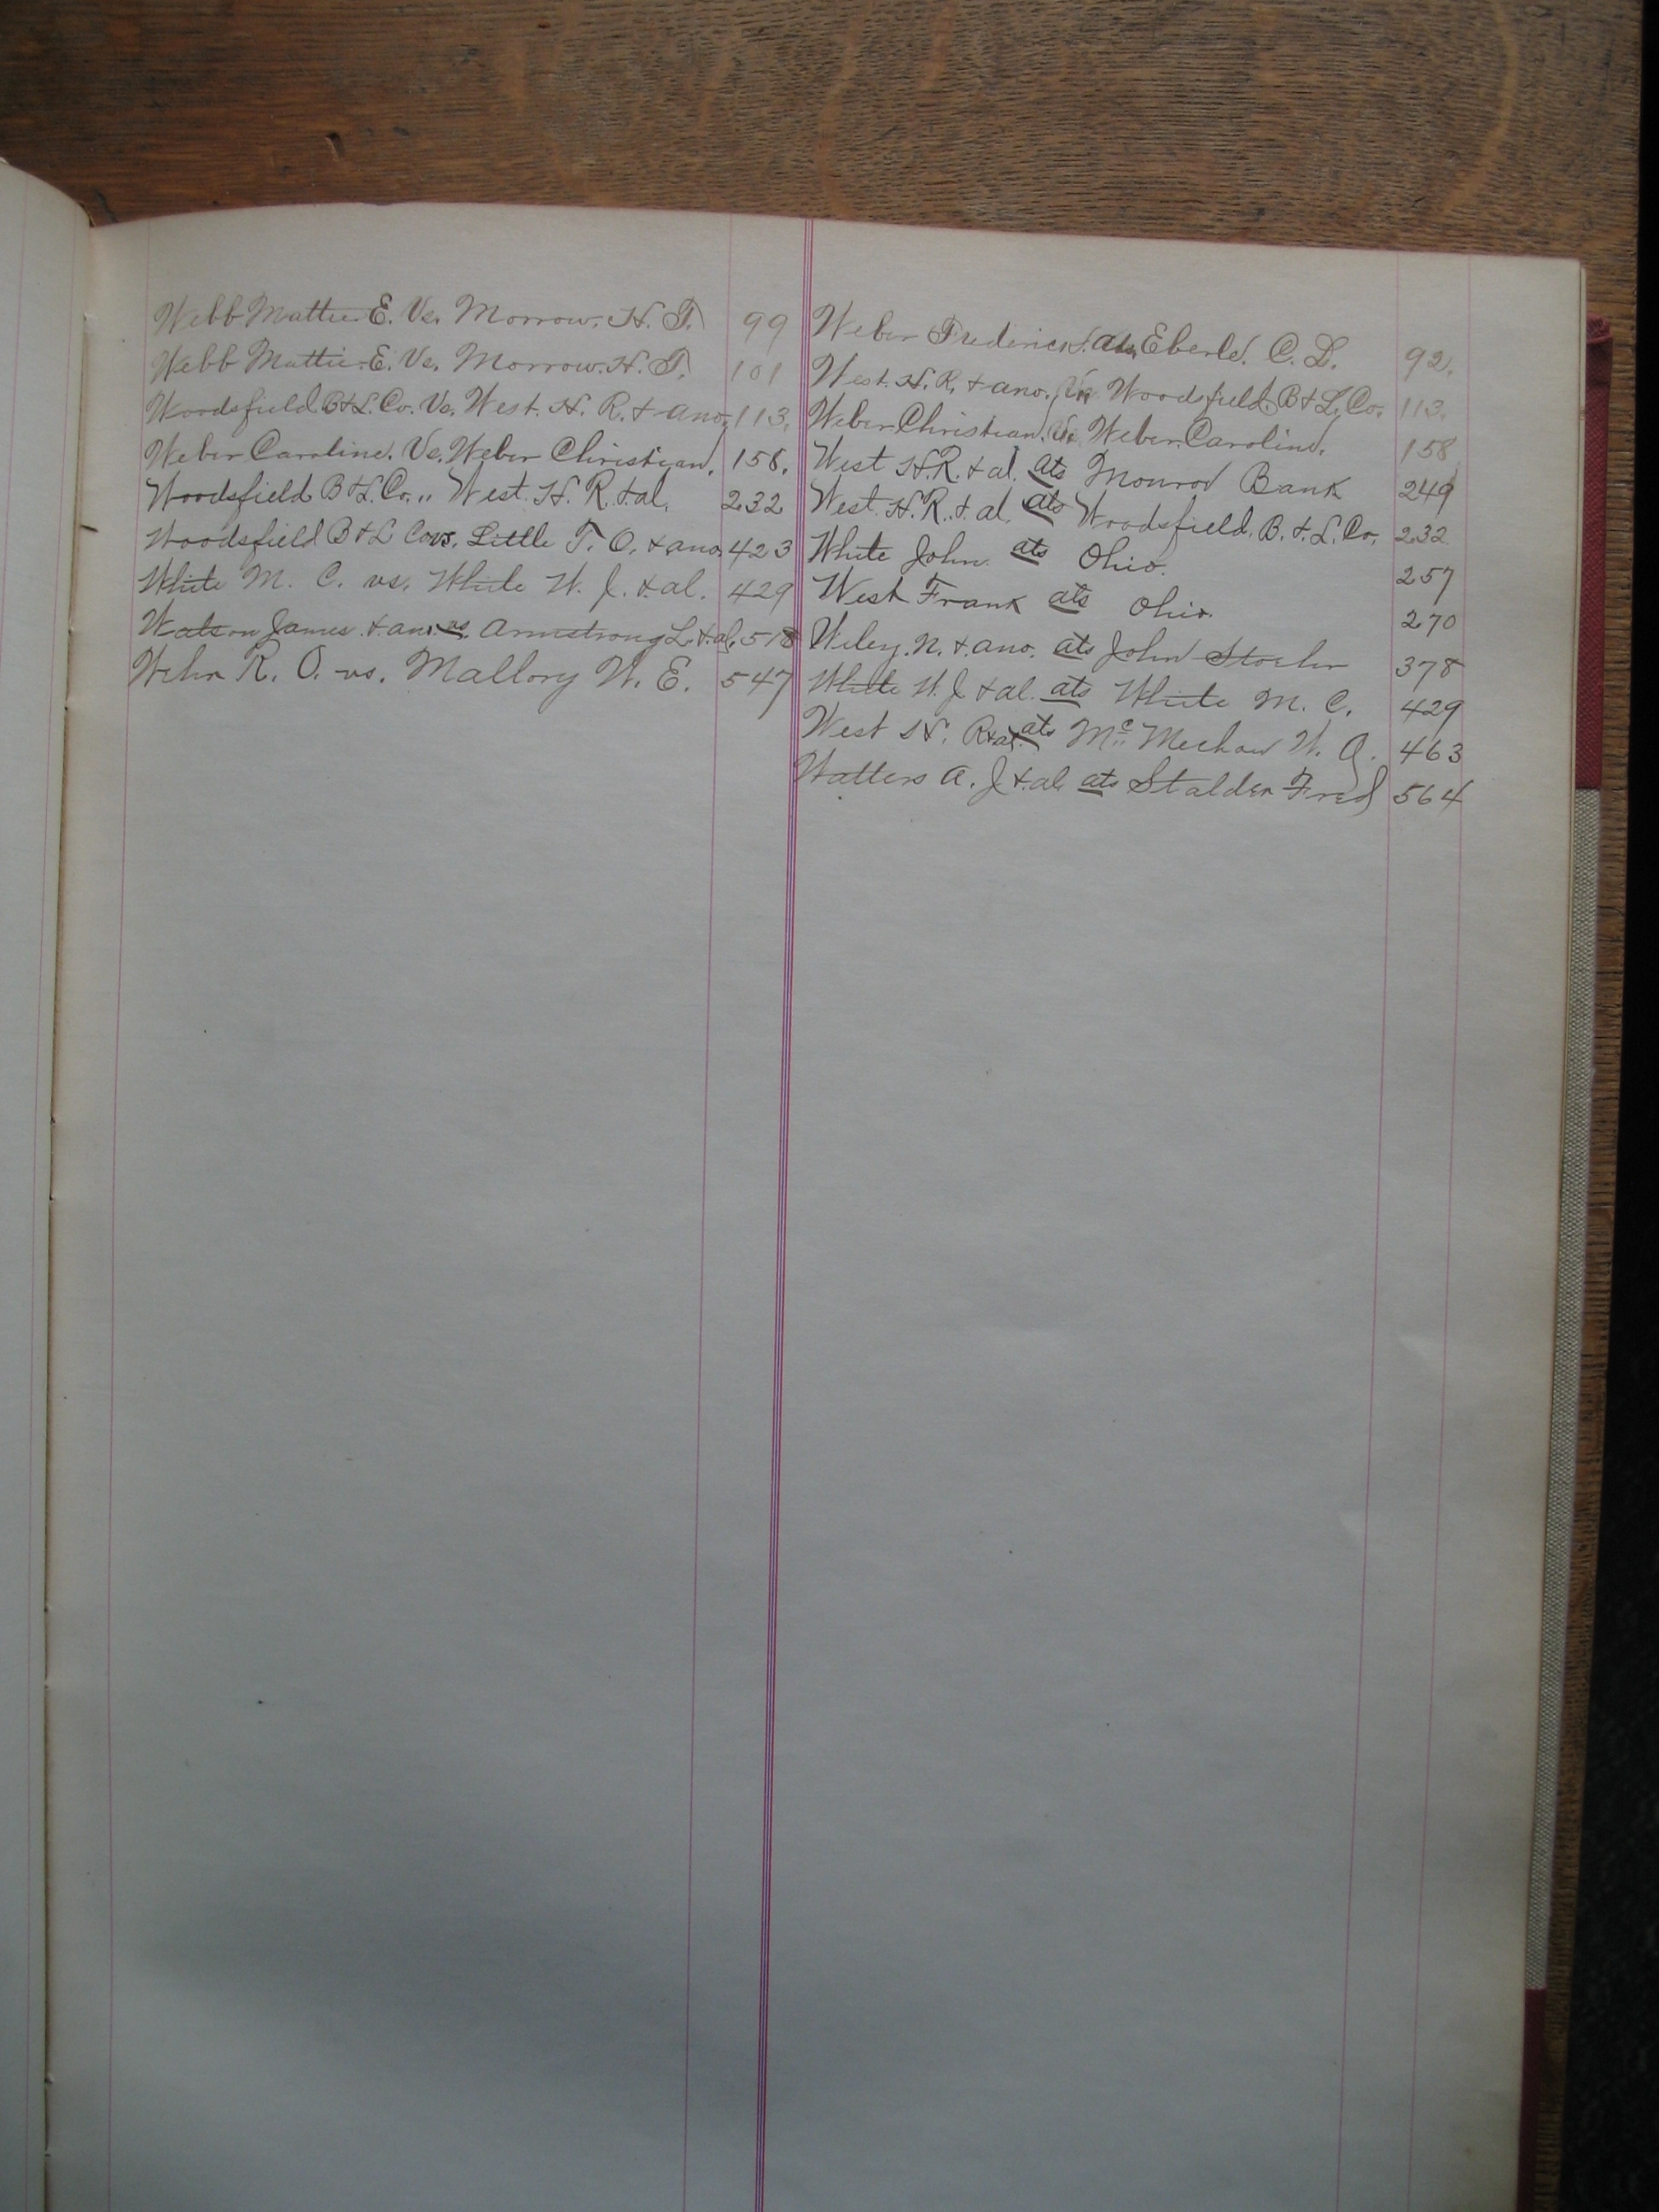 Webb Mattie E. Vs. Morrow. H. T. 99
Webb Mattie E. Vs. Morrow. H. T. 101
Woodsfield B & L. Co. Vs. West. H. R. & ano. 113.
Weber Caroline. Vs. Weber Christian. 158.
Woodsfield B & L. Co. " West. H. R. & al. 232
Woodsfield B & L Co vs. Little T. O. & ano. 423
White M. C. vs. White W. J. & al. 429
Watson James & ano. vs. Armstrong L. & al. 518
Wehr R. O. vs. Mallory W. E. 547
Weber Frederick. ats Eberle. C. L. 92.
West. H. R. & ano. Woodsfield. B & L. Co. 113.
Weber Christian. Vs Weber Caroline. 158
West H. R. & al. ats Monroe Bank 249
West. H. R. & al. ats Woodsfield. B. & L. Co. 232
White John. ats Ohio. 257
West Frank ats Ohio. 270
Wiley. N. & ano. ats John Stoehr 378
White W. J & al. ats White M. C. 429
West H. R & al. ats Mc 463
Watters A. J & al ats Stalder Fred 564